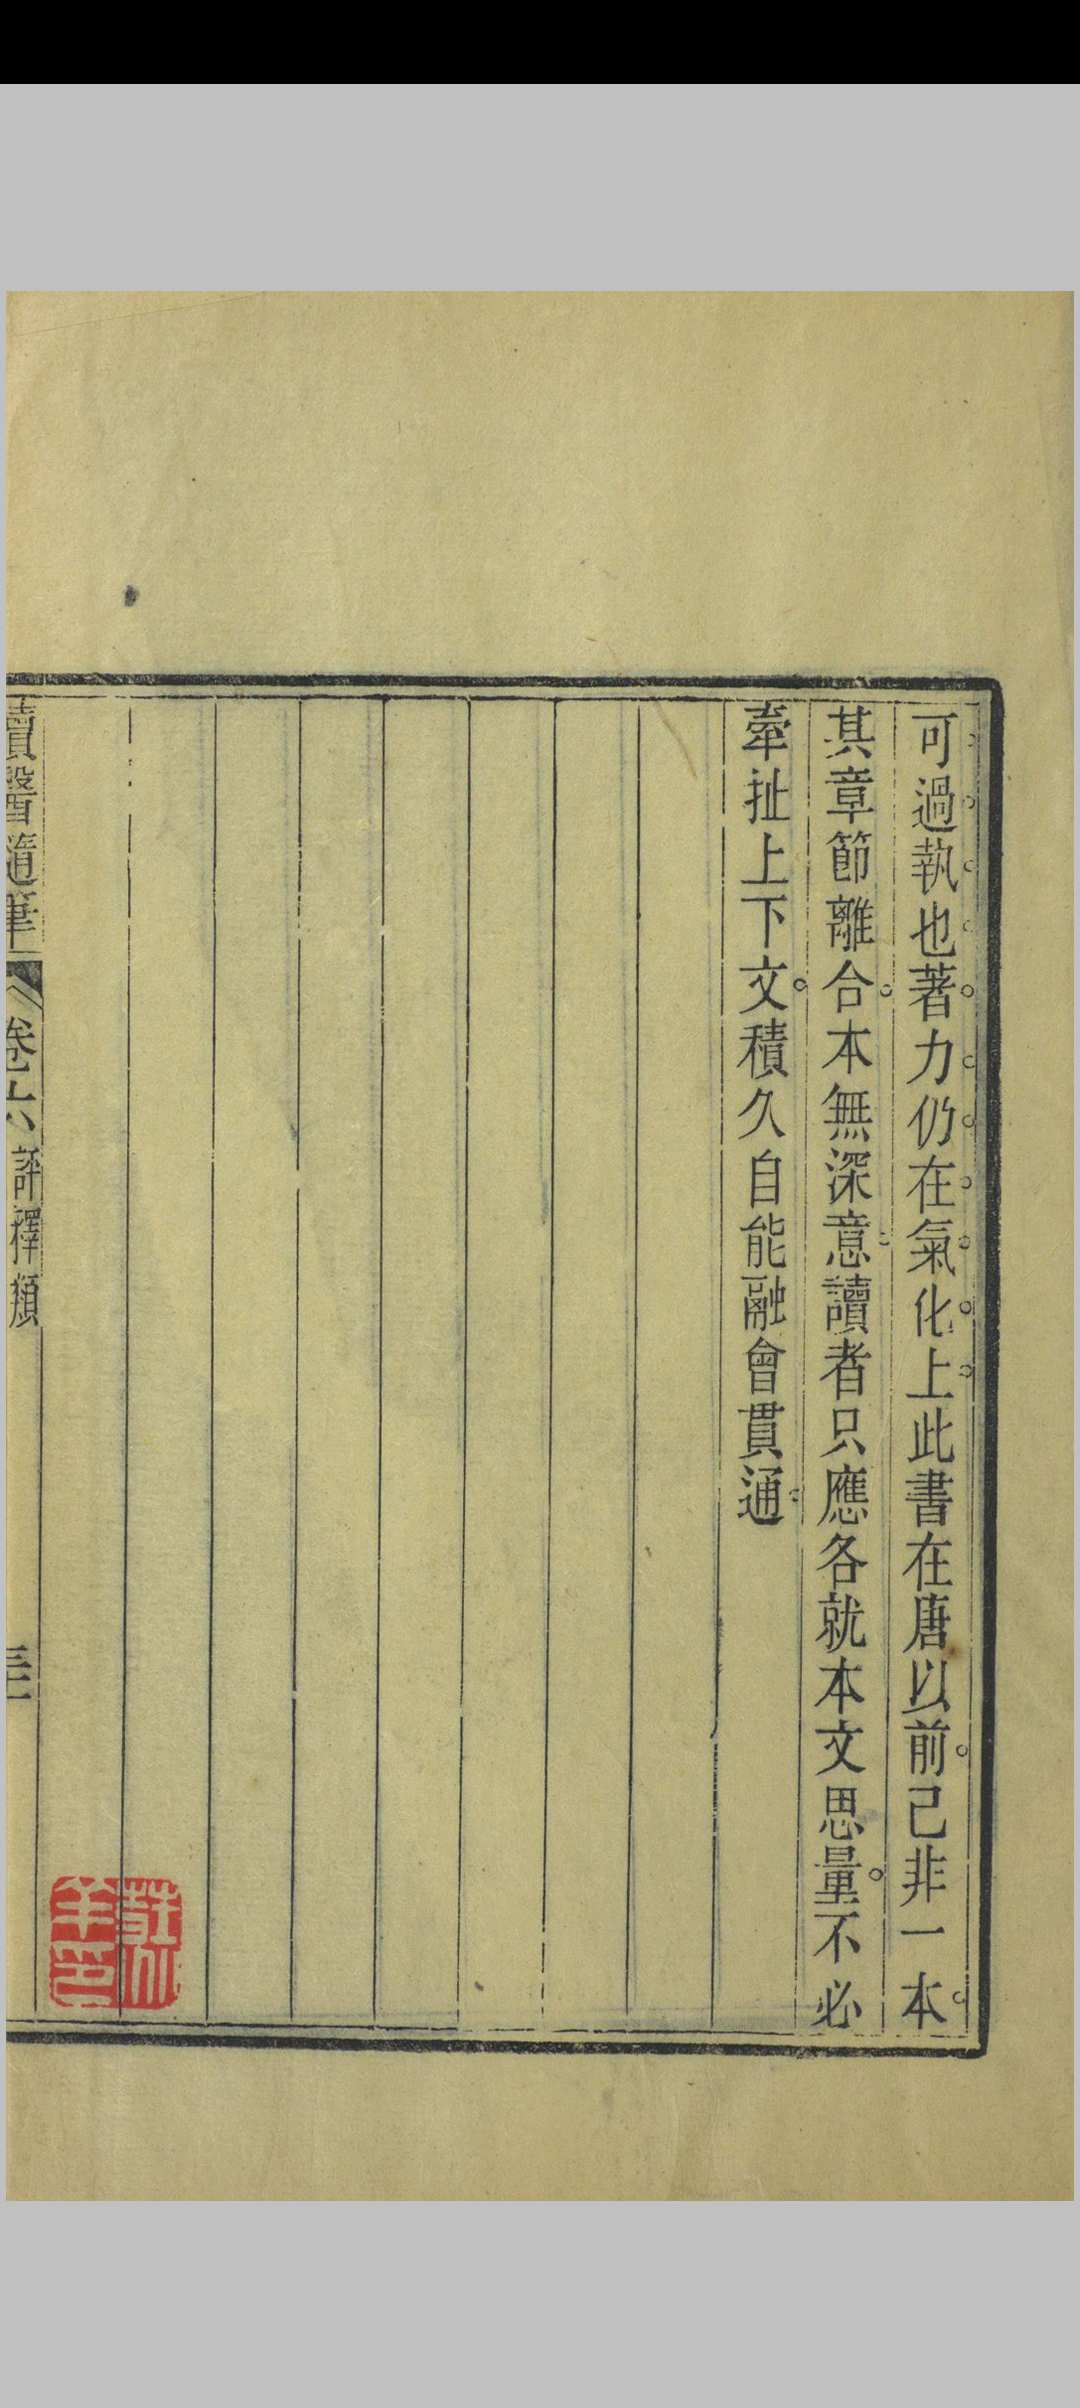 可過執也著力仍在氣化上此書在唐以前已非一本
其章節離合本無深意讀者只應各就本文思量不必
牽扯上下文積久自能融會貫通
讀醫隨筆
卷六
評釋類